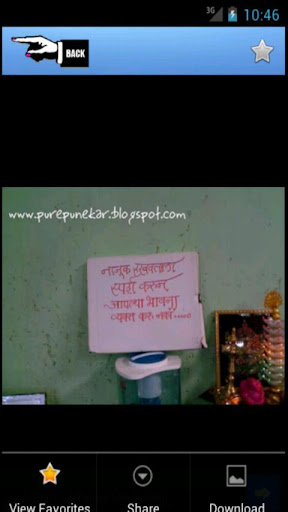 3G 10:46
BACK
www.purepunekar.blogspot.com
नाजूक रुखवताला
स्पर्श करून
आपल्या भावना
व्यक्त करू नका.....
View Favorites Share Download